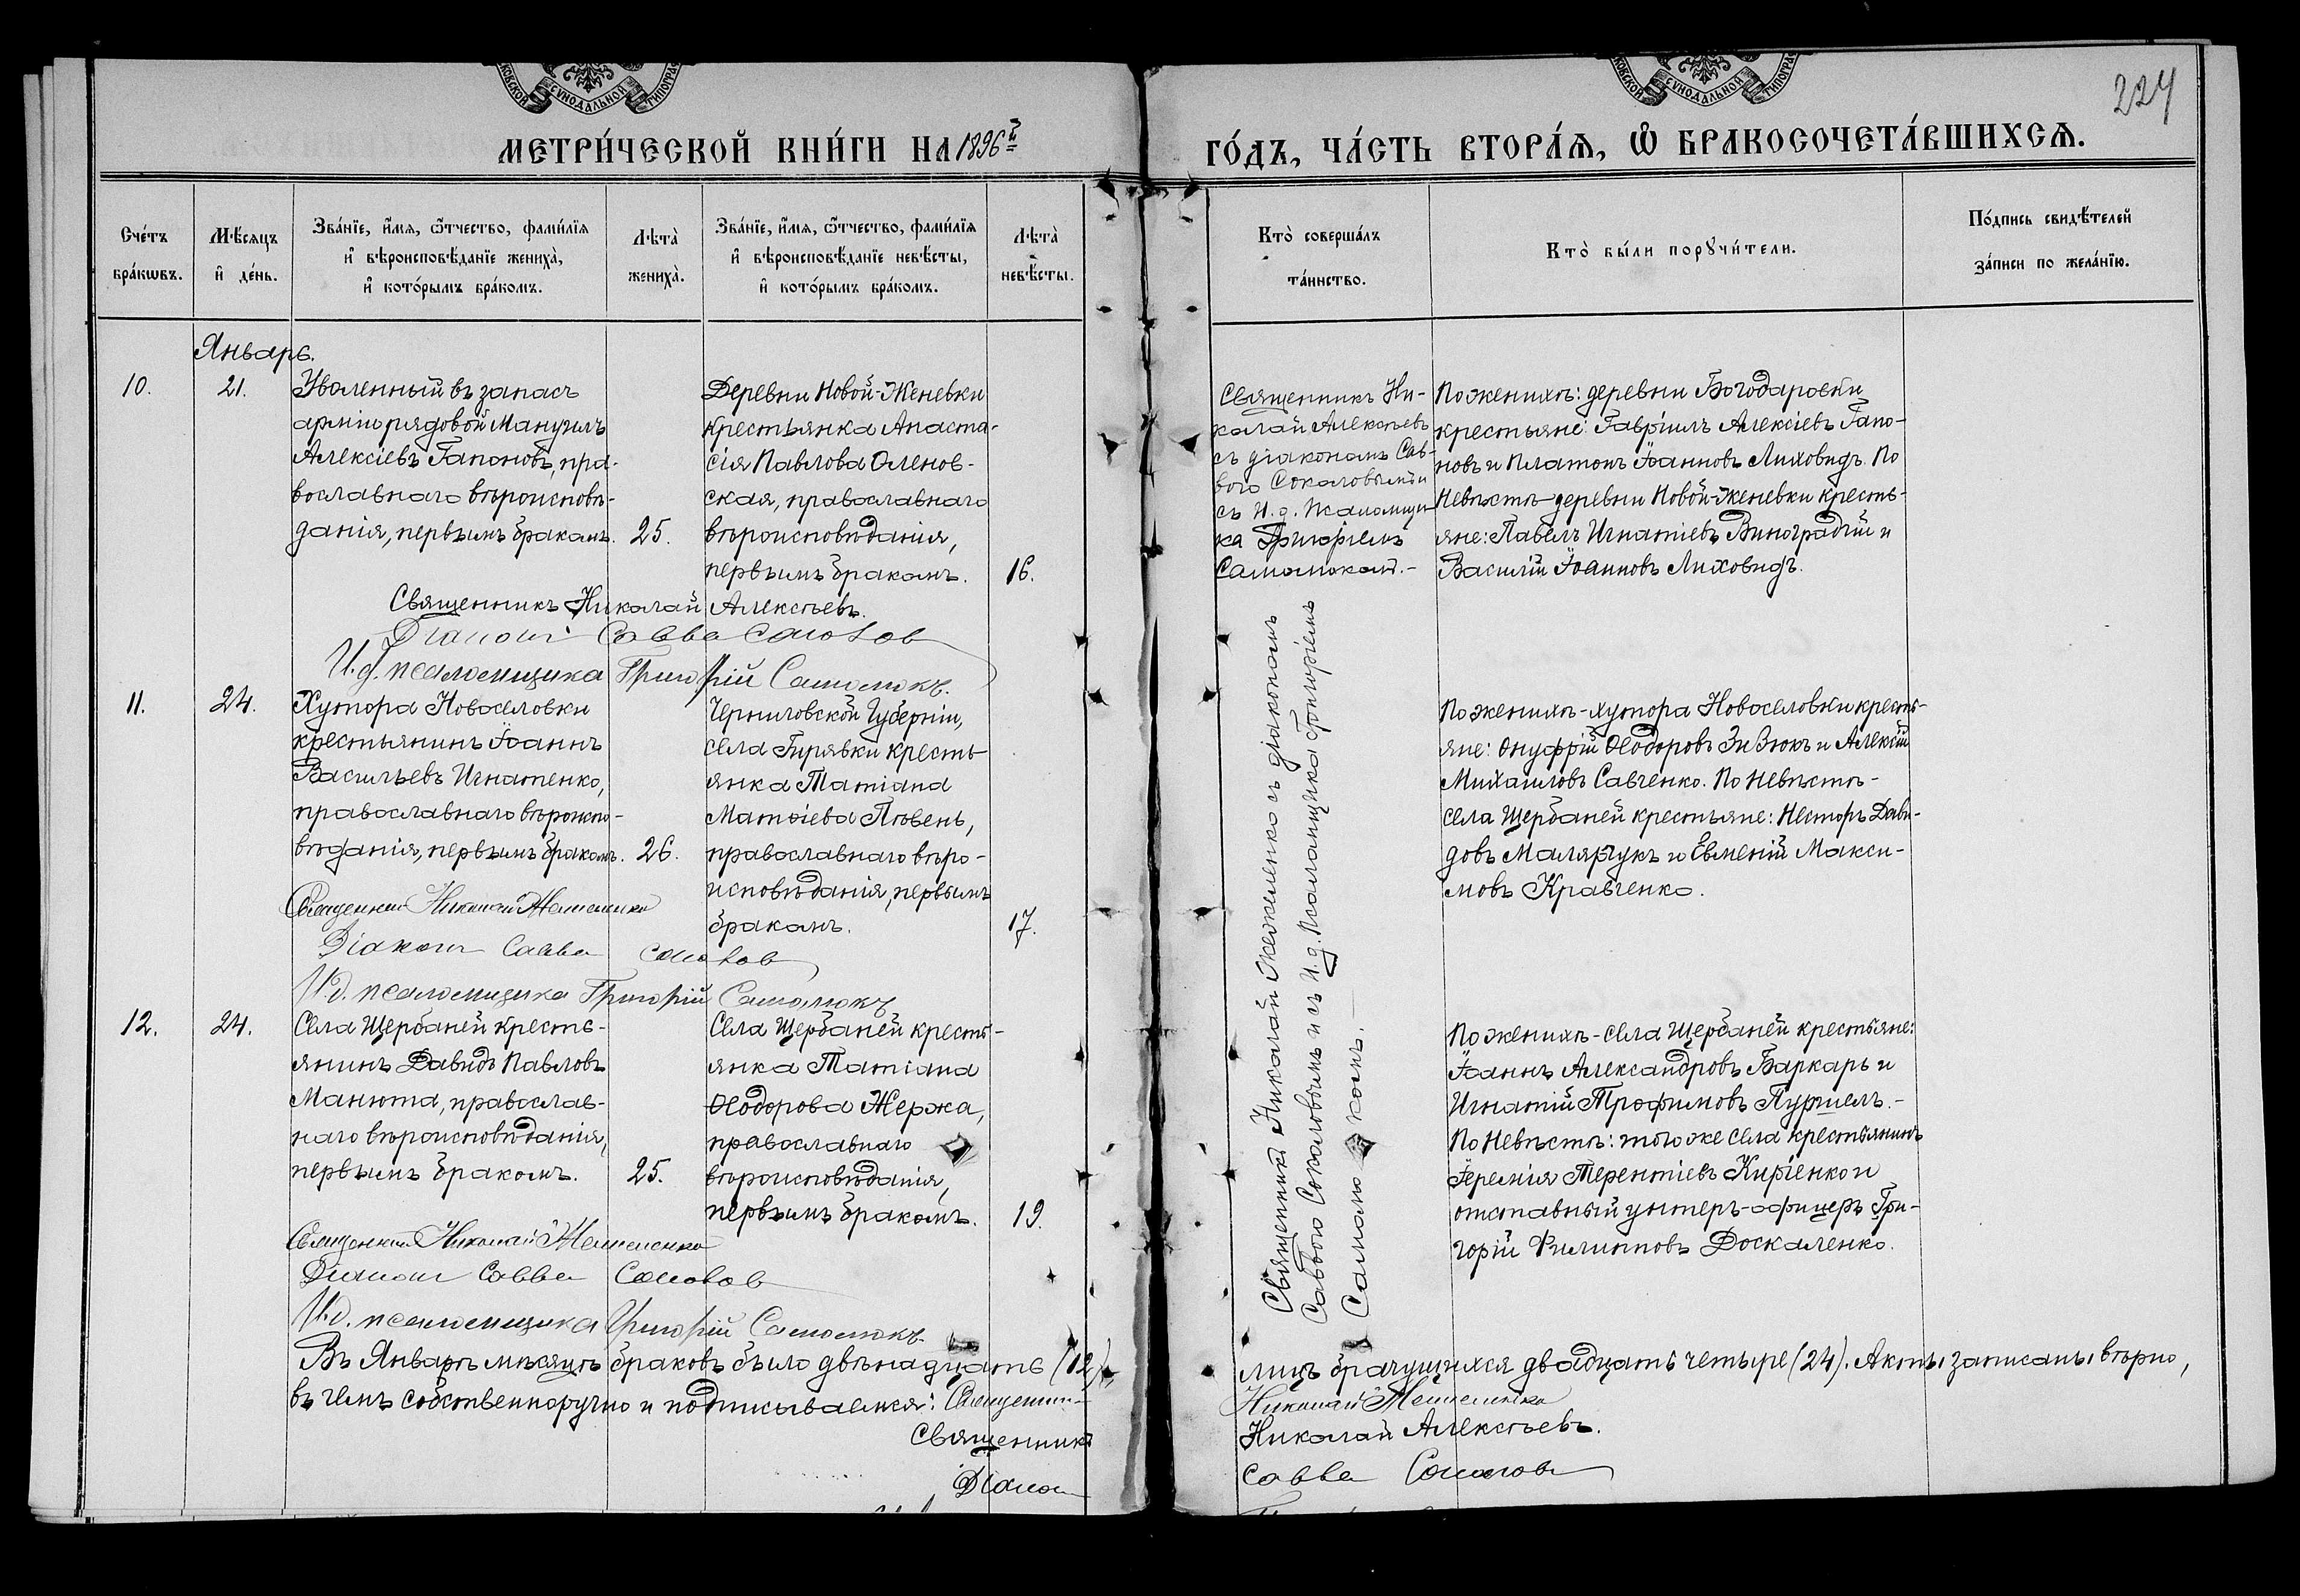 КОВСКОЙ СУНОДАЛЬНОЙ ТИПОГРАФ
КОВСКОЙ СУНОДАЛЬНОЙ ТИПОГРАФ
224
МЕТРИ́ЧЕСКОЙ КНИ́ГИ НА 1896 й
ГО́ДЪ, ЧА́СТЬ ВТОРА́Ѧ, Ѽ БРАКОСОЧЕТА́ВШИХСѦ.
Сче́тъ бра́кѡвъ.
Мѣ́сяцъ и҆ де́нь.
Зва́нїе, и҆́мѧ, ѻ҆́тчество, фами́лїѧ
и҆ вѣроисповѣ́данїе жениха̀,
и҆ кото́рымъ бра́комъ.
Лѣта̀ жениха̀.
Зва́нїе, и҆́мѧ, ѻ҆́тчество, фами́лїѧ
и҆ вѣроисповѣ́данїе невѣ́сты,
и҆ кото́рымъ бра́комъ.
Лѣта̀ невѣ́сты.
Кто̀ соверша́лъ
та́инство.
Кто̀ бы́ли порꙋчи́тели.
По́дпись свидѣ́телей
за́писи по жела́нїю.
Январь.
10.
21.
Уволенный въ запасъ
арміи рядовой Мануилъ
Алексіевъ Гапоновъ, пра-
вославнаго вѣроисповѣ-
данія, первымъ бракомъ.
25.
Деревни Новой-Женевки
крестьянка Анаста-
сія Павлова Оленов-
ская, православнаго
вѣроисповѣданія,
первымъ бракомъ.
16.
Священникъ Ни-
колай Алексѣевъ
съ діакономъ Сав-
вою Соколовымъ и
съ И. д. псаломщи-
ка Григоріемъ
Самолюком.-
По женихѣ: деревни Богодаровки
крестьяне: Гавріилъ Алексіевъ Гапо-
новъ и Платонъ Іоанновъ Лиховидъ. По
Невѣстѣ деревни Новой-Женевки кресть-
яне: Павелъ Игнатіевъ Виноградскій и
Василій Іоанновъ Лиховидъ.
Священникъ Николай Алексѣевъ.
Діаконъ Савва Соколов
И. д. псаломщика Григорій Самолюкъ.
11.
24.
Хутора Новоселовки
крестьянинъ Іоаннъ
Васильевъ Игнатенко,
православнаго вѣроиспо-
вѣданія, первымъ бракомъ.
26.
Черниговской Губерніи,
села Гирявки кресть-
янка Татіана
Матѳіева Пивень,
православнаго вѣро-
исповѣданія, первымъ
бракомъ.
17.
Священникъ Николай Жежеленко съ діакономъ
Саввою Соколовымъ и съ И. д. Псаломщика Григоріемъ
Самолюкомъ. —
По женихѣ - хутора Новоселовки кресть-
яне: Онуфрій Ѳеодоровъ Зизюкъ и Алексій
Михаиловъ Савченко. По Невѣстѣ -
села Щербаней крестьяне: Несторъ Дави-
довъ Малярчукъ и Евменій Макси-
мовъ Кравченко.
Священникъ Николай Жежеленко
Діаконъ Савва Соколов
И. д. псаломщика Григорій Самолюкъ
12.
24.
Села Щербаней кресть-
янинъ Давидъ Павловъ
Манюта, православ-
наго вѣроисповѣданія,
первымъ бракомъ.
25.
Села Щербаней кресть-
янка Татіана
Ѳеодорова Жержа,
православнаго
вѣроисповѣданія,
первымъ бракомъ.
19.
По женихѣ - села Щербаней крестьяне:
Іоаннъ Александровъ Баркарь и
Игнатій Трофимовъ Пуршелъ. -
По Невѣстѣ: того же села крестьянинъ
Іеремія Терентіевъ Киріенко и
отставный унтеръ-офицеръ Гри-
горій Филипповъ Доскаленко.
Священникъ Николай Жежеленко
Діаконъ Савва Соколов
И. д. псаломщика Григорій Самолюкъ.
Въ Январѣ мѣсяцѣ браковъ было двѣнадцать (12), лицъ брачущихся двадцать четыре (24). Акты записаны вѣрно,
въ чемъ собственноручно и подписываемся: Священникъ Николай Жежеленко
Священникъ Николай Алексѣевъ.
Діаконъ Савва Соколовъ